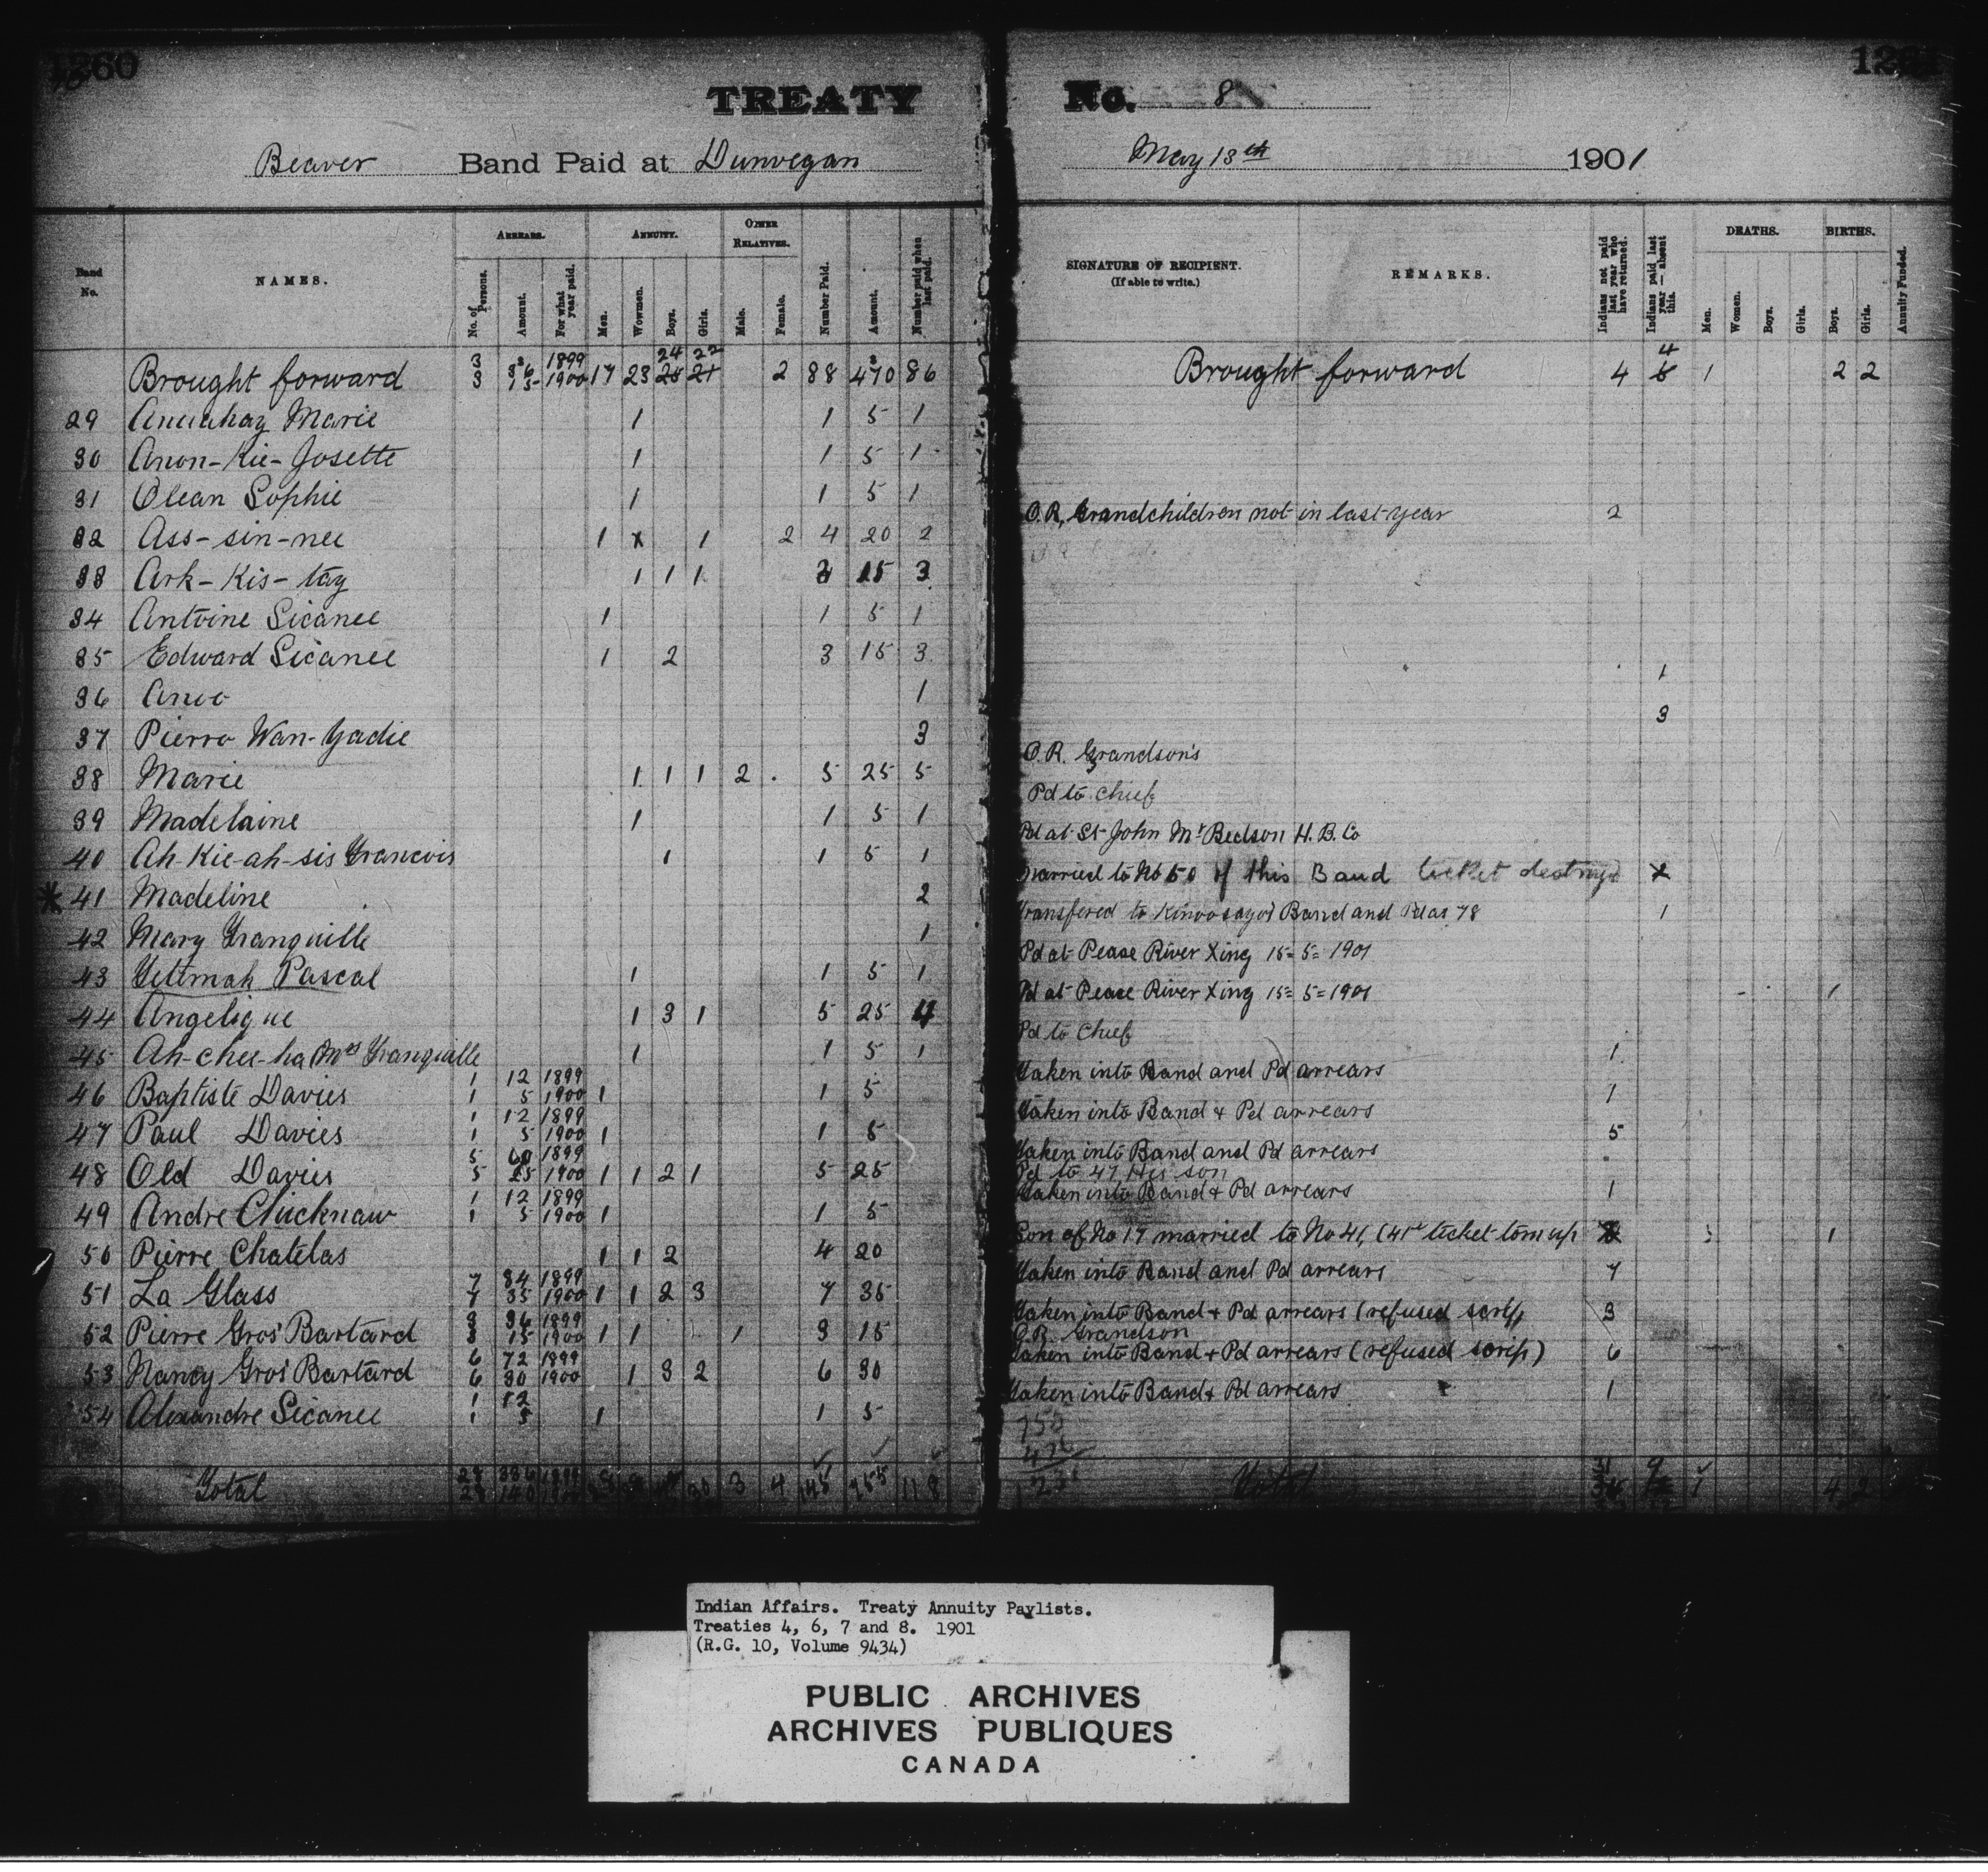 1260
TREATY No. 8
Beaver Band Paid at Dunvegan May 13th 1901
Band No. NAMES. ARREARS. ANNUITY. OTHER RELATIVES. Number Paid. Amount. Number paid when last paid. SIGNATURE OF RECIPIENT. (If able to write.) REMARKS. Indians not paid last year who have returned. Indians paid last year — absent this. DEATHS. BIRTHS. Annuity Funded.
No. of Persons. Amount. For what year paid. Men. Wowmen. Boys. Girls. Male. Female. Men. Women. Boys. Girls. Boys. Girls.
Brought forward 3 36 1899 3 15 1900 17 23 24 22 2 88 470 86 Brought forward 4 4 1 2 2
29 Marie 1 1 5 1
30 Anon-Kie-Josette 1 1 5 1
31 Olean Sophie 1 1 5 1
32 Ass-sin-nee 1 x 1 2 4 20 2 O.R, Grandchildren not in last year 2
33 Ark-Kis-tay 1 1 1 3 15 3
34 Antoine Sicanee 1 1 5 1
35 Edward Sicanee 1 2 3 15 3
36 Anoo 1 1
37 Pierro Wan-Yadie 3 3
38 Marie 1 1 1 2 5 25 5 O.R. Grandson's
39 Madelaine 1 1 5 1 Pd to Chief
40 Ah-Kie-ah-sis Francois 1 1 5 1 Pd at St John Mr Bedson H.B.Co
41 Madeline 2 Married to No 50 of this Band ticket destroyd x
42 Mary Tranquille 1 Transfered to Kinoosayo's Band and Pd as 78 1
43 Yettmah Pascal 1 1 5 1 Pd at Peace River Xing 15=5=1901
44 Angelique 1 3 1 5 25 4 Pd at Peace River Xing 15=5=1901 1
45 Ah-chee-ha (Mrs Tranquille 1 1 5 1 Pd to Chief
46 Baptiste Davies 1 12 1899 1 5 1900 1 1 5 Taken into Band and Pd arrears 1
47 Paul Davies 1 12 1899 1 5 1900 1 1 5 Taken into Band & Pd arrears 1
48 Old Davies 5 60 1899 5 25 1900 1 1 2 1 5 25 Taken into Band and Pd arrears 5
Pd to 47 His son
49 Andre Chucknaw 1 12 1899 1 5 1900 1 1 5 Taken into Band & Pd arrears 1
50 Pierre Chatelas 1 1 2 4 20 Son of No 17 married to No 41, (41st ticket torn up 1
51 La Glass 7 84 1899 7 35 1900 1 1 2 3 7 35 Taken into Band and Pd arrears 7
52 Pierre Gros Bastard 3 36 1899 3 15 1900 1 1 1 3 15 Taken into Band & Pd arrears (refused scrip, 3
O.R. Grandson
53 Nancy Gros Bastard 6 72 1899 6 30 1900 1 3 2 6 30 Taken into Band & Pd arrears (refused scrip) 6
54 Alexandre Sicanee 1 12 1 5 1 1 5 Taken into Band & Pd arrears 1
Total 28 336 1899 28 140 1900 30 3 4 145 755 118 Total 31 9 1 4 2
Indian Affairs. Treaty Annuity Paylists.
Treaties 4, 6, 7 and 8. 1901
(R.G. 10, Volume 9434)
PUBLIC ARCHIVES
ARCHIVES PUBLIQUES
CANADA